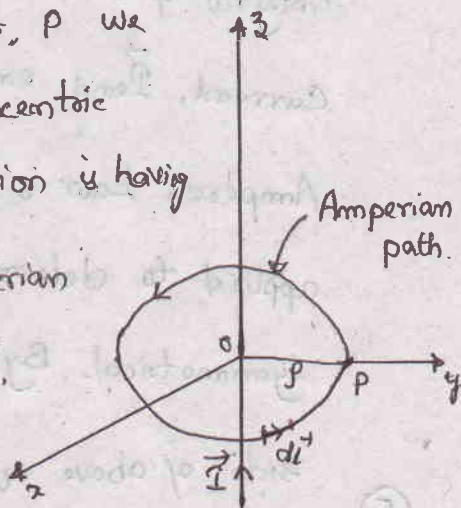 P we
centric
ion is having
erian
z
Amperian
path.
O
ρ
P
y
dl
I
x